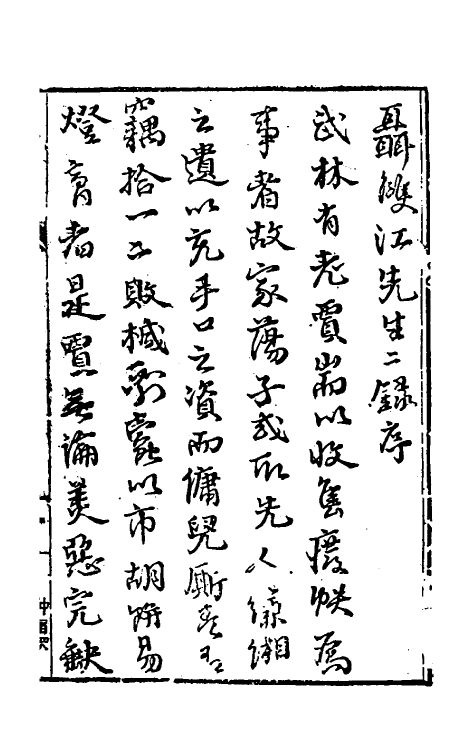 聶雙江先生二錄序
武林有老賈耑以收售廢帙爲
事者故家蕩子或取先人緑緗
之遺以充手口之資而傭兒廝養
竊拾一二敗槭剩竄以市胡餅易
燈膏者是賈無論美惡完缺